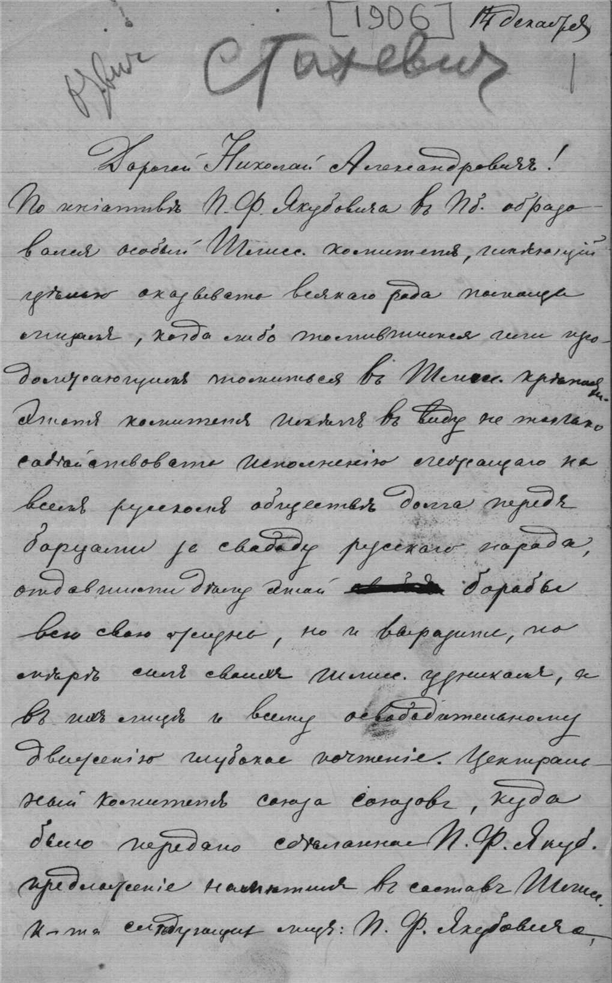 [1906] 14 декабря
Стахевич
Дорогой Николай Александровичъ!
По иніативѣ П. Ф. Якубовича въ Пб. образо-
вался особый Шлисс. комитетъ, имѣющій
цѣлью оказывать всякаго рода помощь
лицамъ, когда либо томившимся или про-
должающимъ томиться въ Шлисс. крѣпости.
Этотъ комитетъ имѣетъ въ виду не только
содѣйствовать исполненію лежащаго на
всемъ русскомъ обществѣ долга передъ
борцами за свободу русскаго народа,
отдавшими дѣлу этой борьбы
всю свою жизнь, но и выразить, по
мѣрѣ силъ своихъ шлисс. узникамъ, а
въ ихъ лицѣ и всему освободительному
движенію глубокое почтеніе. Централь-
ный комитетъ союза союзовъ, куда
было передано сдѣланное П. Ф. Якуб.
предложеніе намѣтилъ въ составъ Шлис.
к-та слѣдующихъ лицъ: П. Ф. Якубовича,